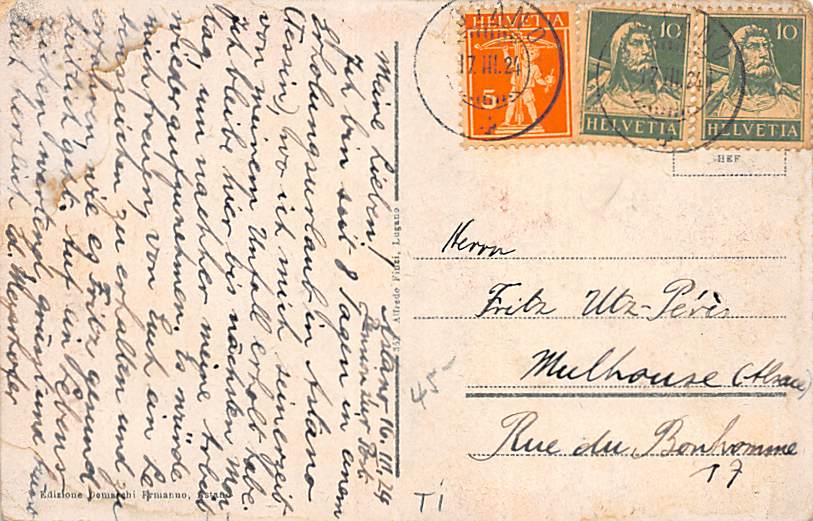 Astano 16. III. 24
Meine Lieben!
Ich bin seit 8 Tagen in einem
Erholungsurlaub in Astano
(Tessin), wo ich mich seinerzeit
von meinem Unfall erholt habe.
Ich bleibe hier bis nächsten Mon-
tag um nachher meine Arbeit
wiederaufzunehmen. Es würde
mich freuen, von Euch ein Le-
benszeichen zu erhalten und zu
erfahren, wie es Fritz gesund
heitlich geht. Auf ein Lebens
zeichen wartend, grüsst und
Euch herzlich
Edizione Demarchi Ermanno, Astano
Alfredo Finzi, Lugano
HELVETIA
5
10
HELVETIA
10
HELVETIA
17.III.24
17.III.24
Herrn
Fritz Utz-Pérès
Mulhouse (Alsace)
Rue du Bonhomme
17
45-
TI